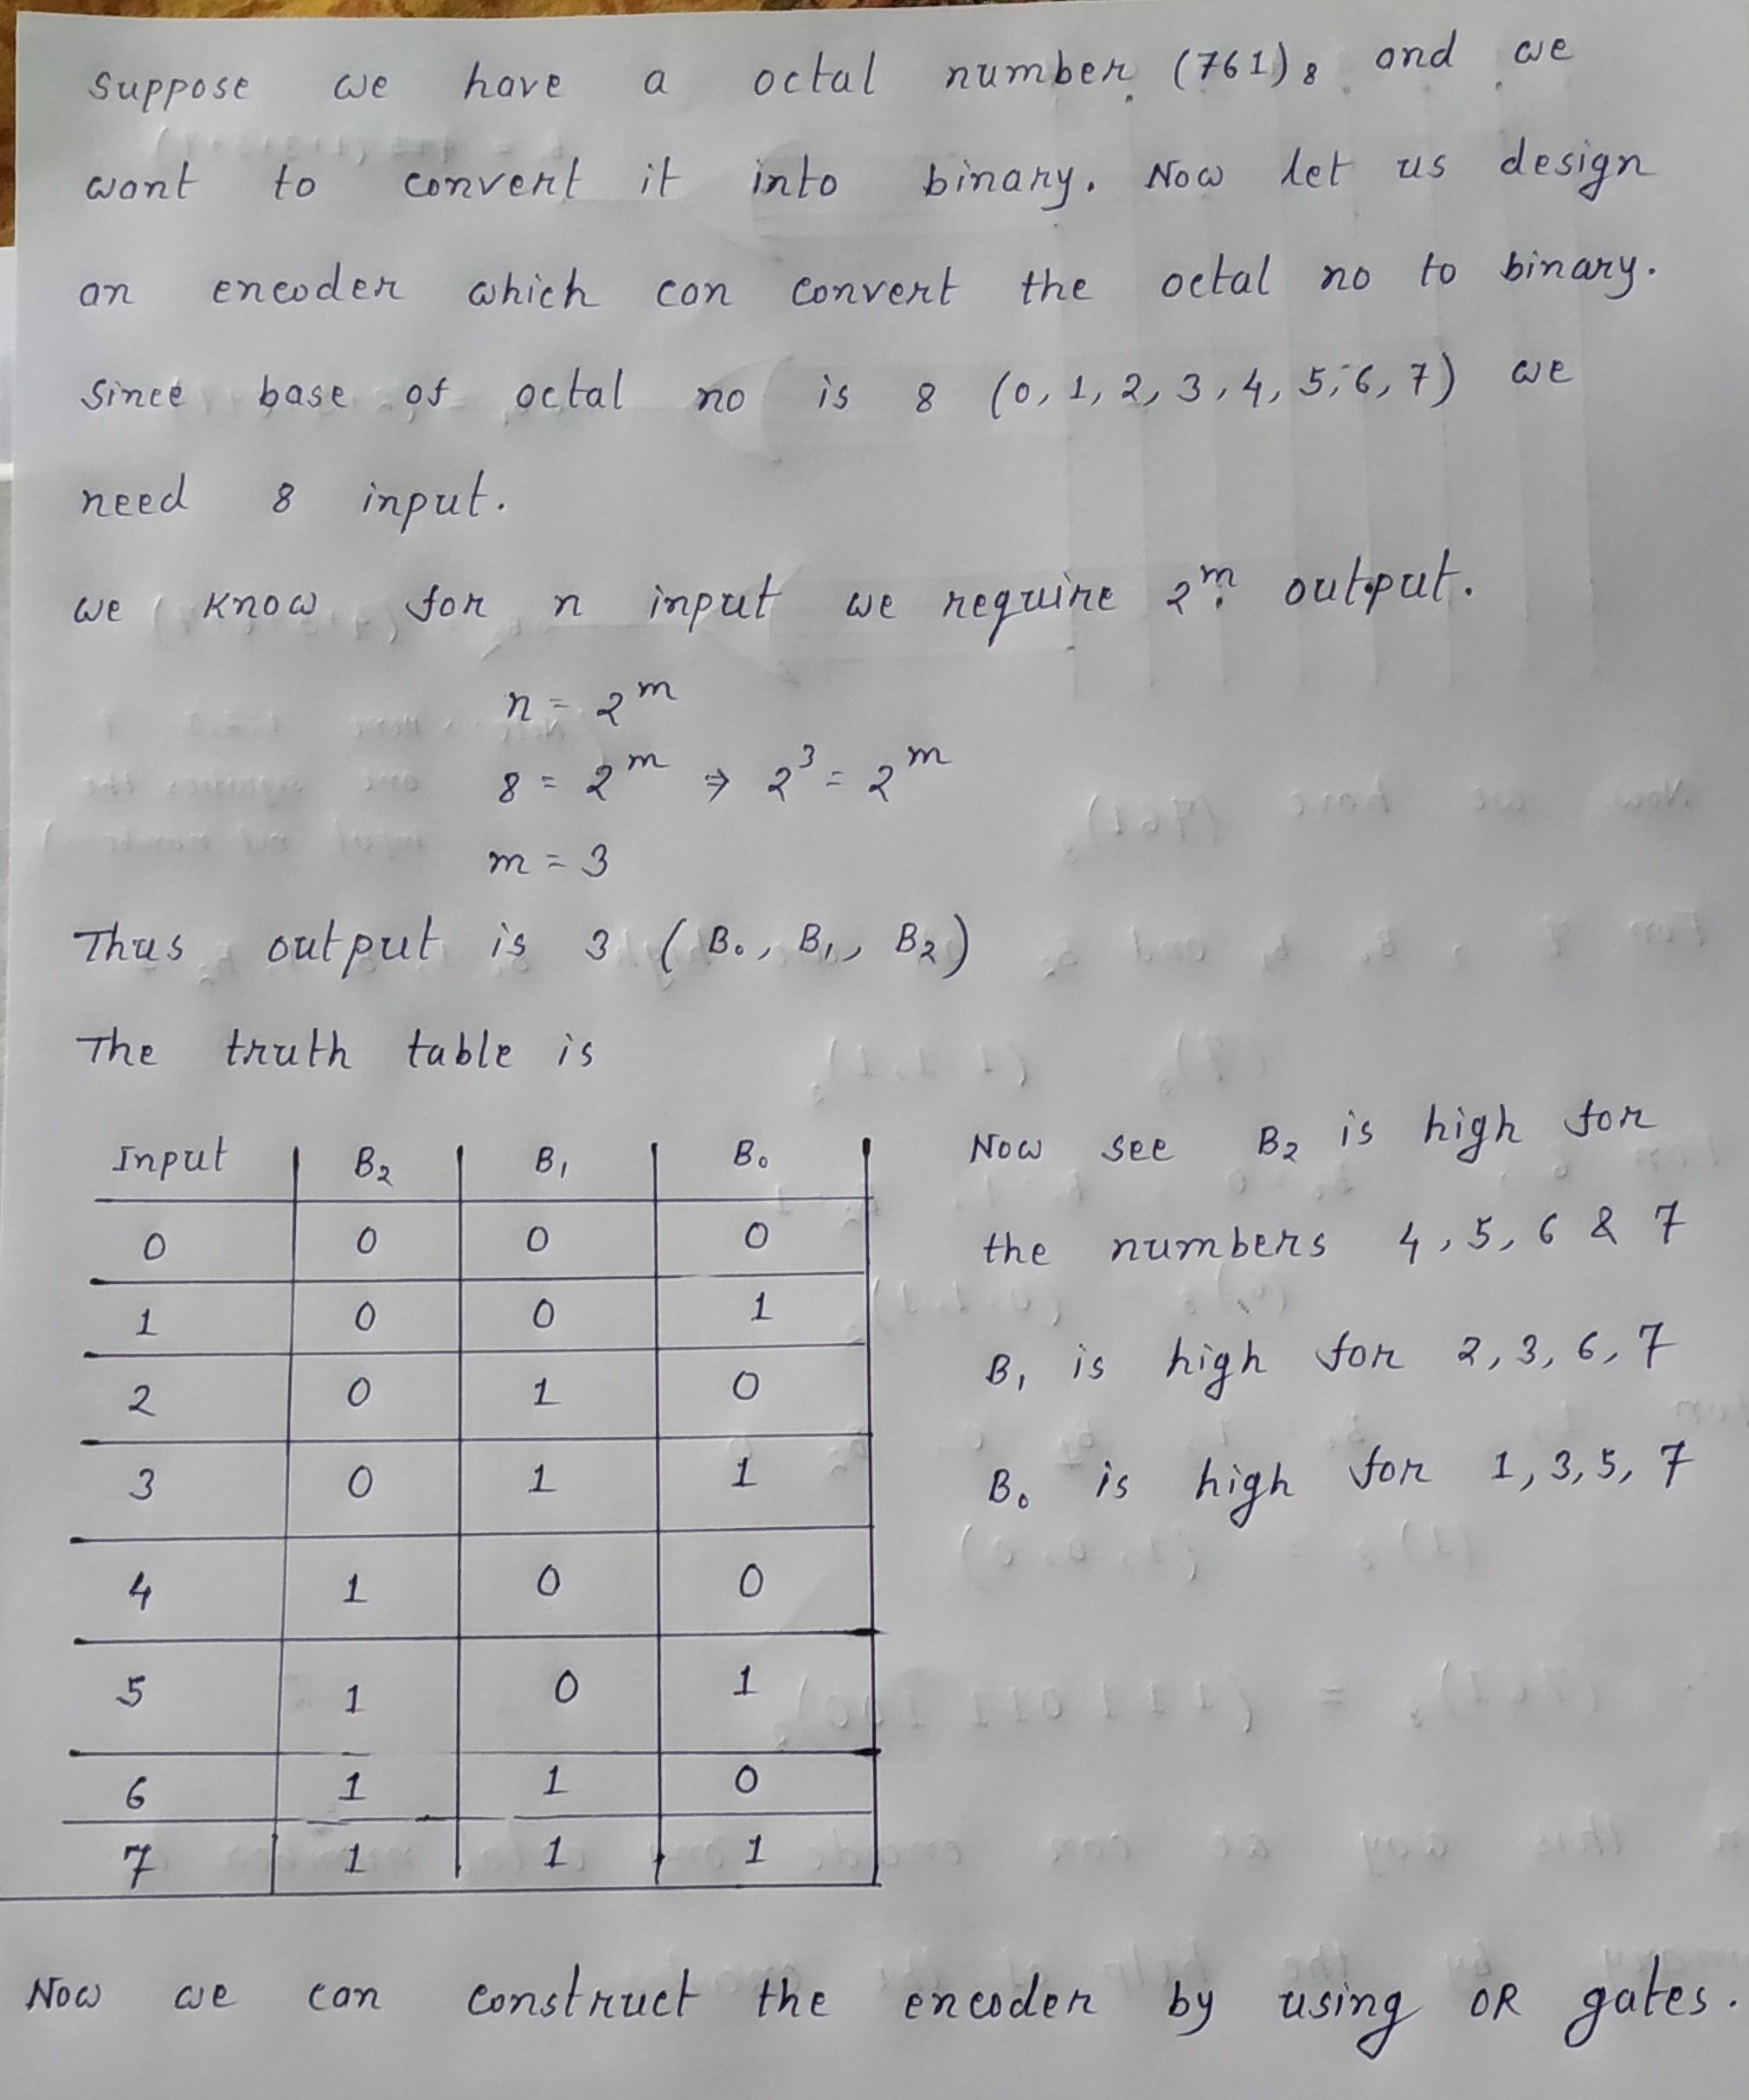 Suppose we have a octal number (761)₈ and we
want to convert it into binary. Now let us design
an encoder which can convert the octal no to binary.
Since base of octal no is 8 (0, 1, 2, 3, 4, 5, 6, 7) we
need 8 input.
we know for n input we require 2ᵐ output.
n = 2ᵐ
8 = 2ᵐ ⇒ 2³ = 2ᵐ
m = 3
Thus output is 3 (B₀, B₁, B₂)
The truth table is
Input B₂ B₁ B₀
0 0 0 0
1 0 0 1
2 0 1 0
3 0 1 1
4 1 0 0
5 1 0 1
6 1 1 0
7 1 1 1
Now see B₂ is high for
the numbers 4, 5, 6 & 7
B₁ is high for 2, 3, 6, 7
B₀ is high for 1, 3, 5, 7
Now we can construct the encoder by using OR gates.